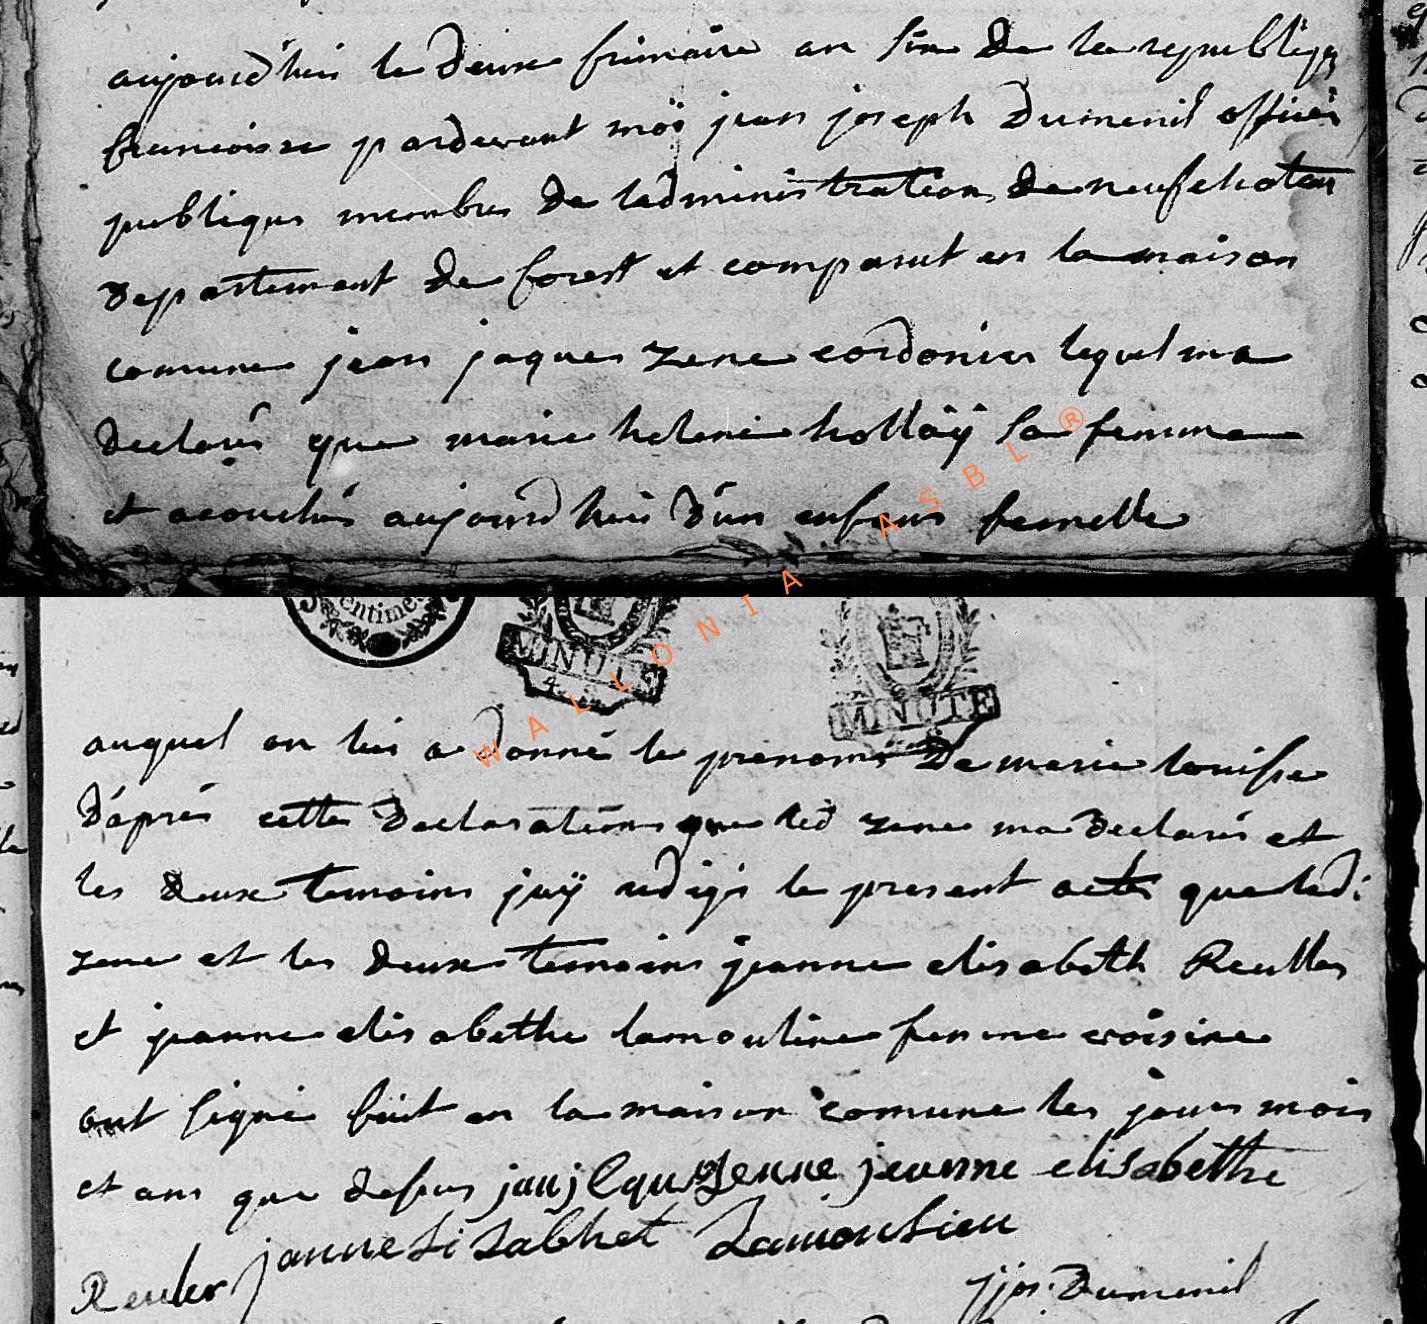 aujourdhui le deux frimaire an six de la republiqq
francoisse pardevant moÿ jean joseph Dumenil officier
publique membre de ladministration de neufchateau
departement de forest et comparut en la maison
comune jean jaques zene cordonier lequel ma
declaré que marie helene hollaÿ sa femme
et acouchés aujourdhui d'un enfant femelle
entimes
MINUTE
MINUTE
WALLONIA ASBL ®
auquel on lui a donné le prenoms De marie louisse
D'aprés cette Declaration que led zene ma declarés et
les deux temoins jaÿ redigé le present acte que ledi
zene et les deux temoins jeanne elisabeth Reulles
et jeanne elisabethe lamouline femme voisine
ont signé fait en la maison comune les jours mois
et ans que desus janjacque zenne jeanne elisabethe
janne Lisabhet Lamoulien
Reuler
jjos. Dumenil